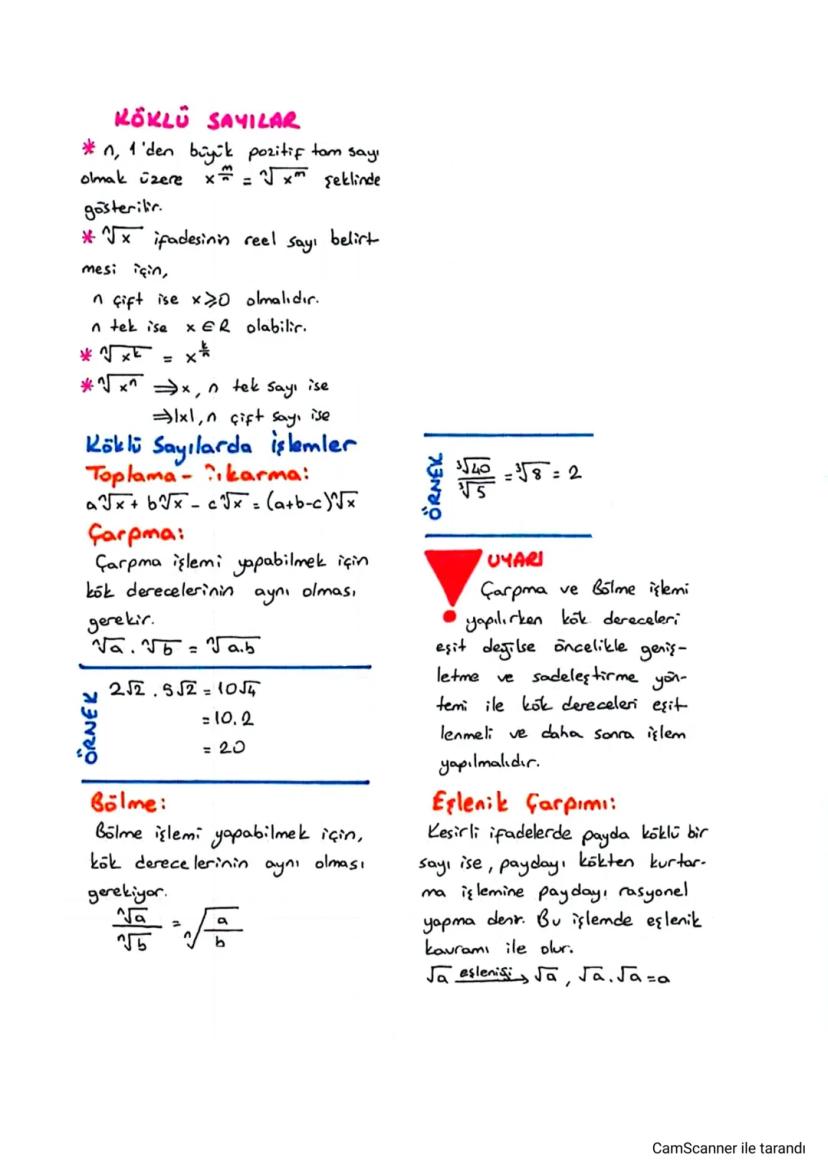 KÖKLÜ SAYILAR
* n, 1'den büyük pozitif tam sayı
olmak üzere x^(m/n) = ⁿ√(x^m) şeklinde
gösterilir.
* ⁿ√x ifadesinin reel sayı belirt
mesi için,
n çift ise x≥0 olmalıdır.
n tek ise x∈R olabilir.
* ⁿ√(x^k) = x^(k/n)
* ⁿ√(xⁿ) ⇒x, n tek sayı ise
⇒|x|, n çift sayı ise
Köklü Sayılarda işlemler
Toplama - Çıkarma:
aⁿ√x + bⁿ√x - cⁿ√x = (a+b-c)ⁿ√x
Çarpma:
Çarpma işlemi yapabilmek için
kök derecelerinin aynı olması
gerekir.
ⁿ√a . ⁿ√b = ⁿ√(a.b)
ÖRNEK
2√2 . 5√2 = 10√4
= 10.2
= 20
Bölme:
Bölme işlemi yapabilmek için,
kök derecelerinin aynı olması
gerekiyor.
ⁿ√a / ⁿ√b = ⁿ√(a/b)
ÖRNEK
³√40 / ³√5 = ³√8 = 2
UYARI
Çarpma ve Bölme işlemi
yapılırken kök dereceleri
eşit değilse öncelikle geniş-
letme ve sadeleştirme yön-
temi ile kök dereceleri eşit
lenmeli ve daha sonra işlem
yapılmalıdır.
Eşlenik Çarpımı:
Kesirli ifadelerde payda köklü bir
sayı ise, paydayı kökten kurtar-
ma işlemine paydayı rasyonel
yapma denir. Bu işlemde eşlenik
kavramı ile olur.
√a eşleniği→ √a, √a.√a=a
CamScanner ile tarandı